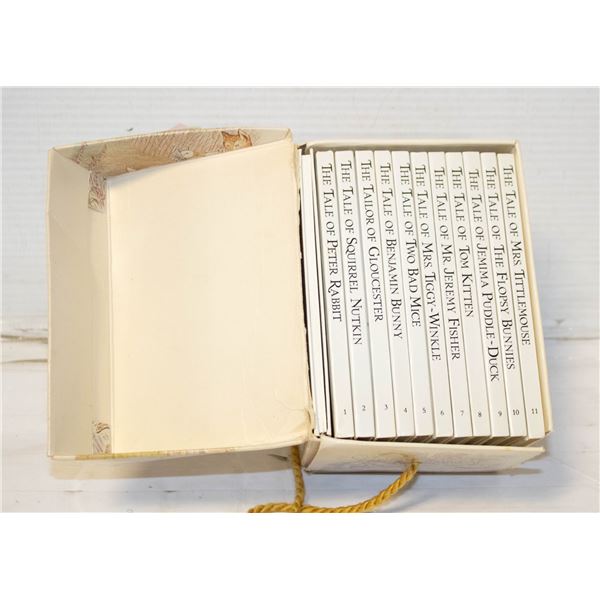 THE TALE OF PETER RABBIT
1
THE TALE OF SQUIRREL NUTKIN
2
THE TAILOR OF GLOUCESTER
3
THE TALE OF BENJAMIN BUNNY
4
THE TALE OF TWO BAD MICE
5
THE TALE OF MRS. TIGGY-WINKLE
6
THE TALE OF MR. JEREMY FISHER
7
THE TALE OF TOM KITTEN
8
THE TALE OF JEMIMA PUDDLE-DUCK
9
THE TALE OF THE FLOPSY BUNNIES
10
THE TALE OF MRS TITTLEMOUSE
11